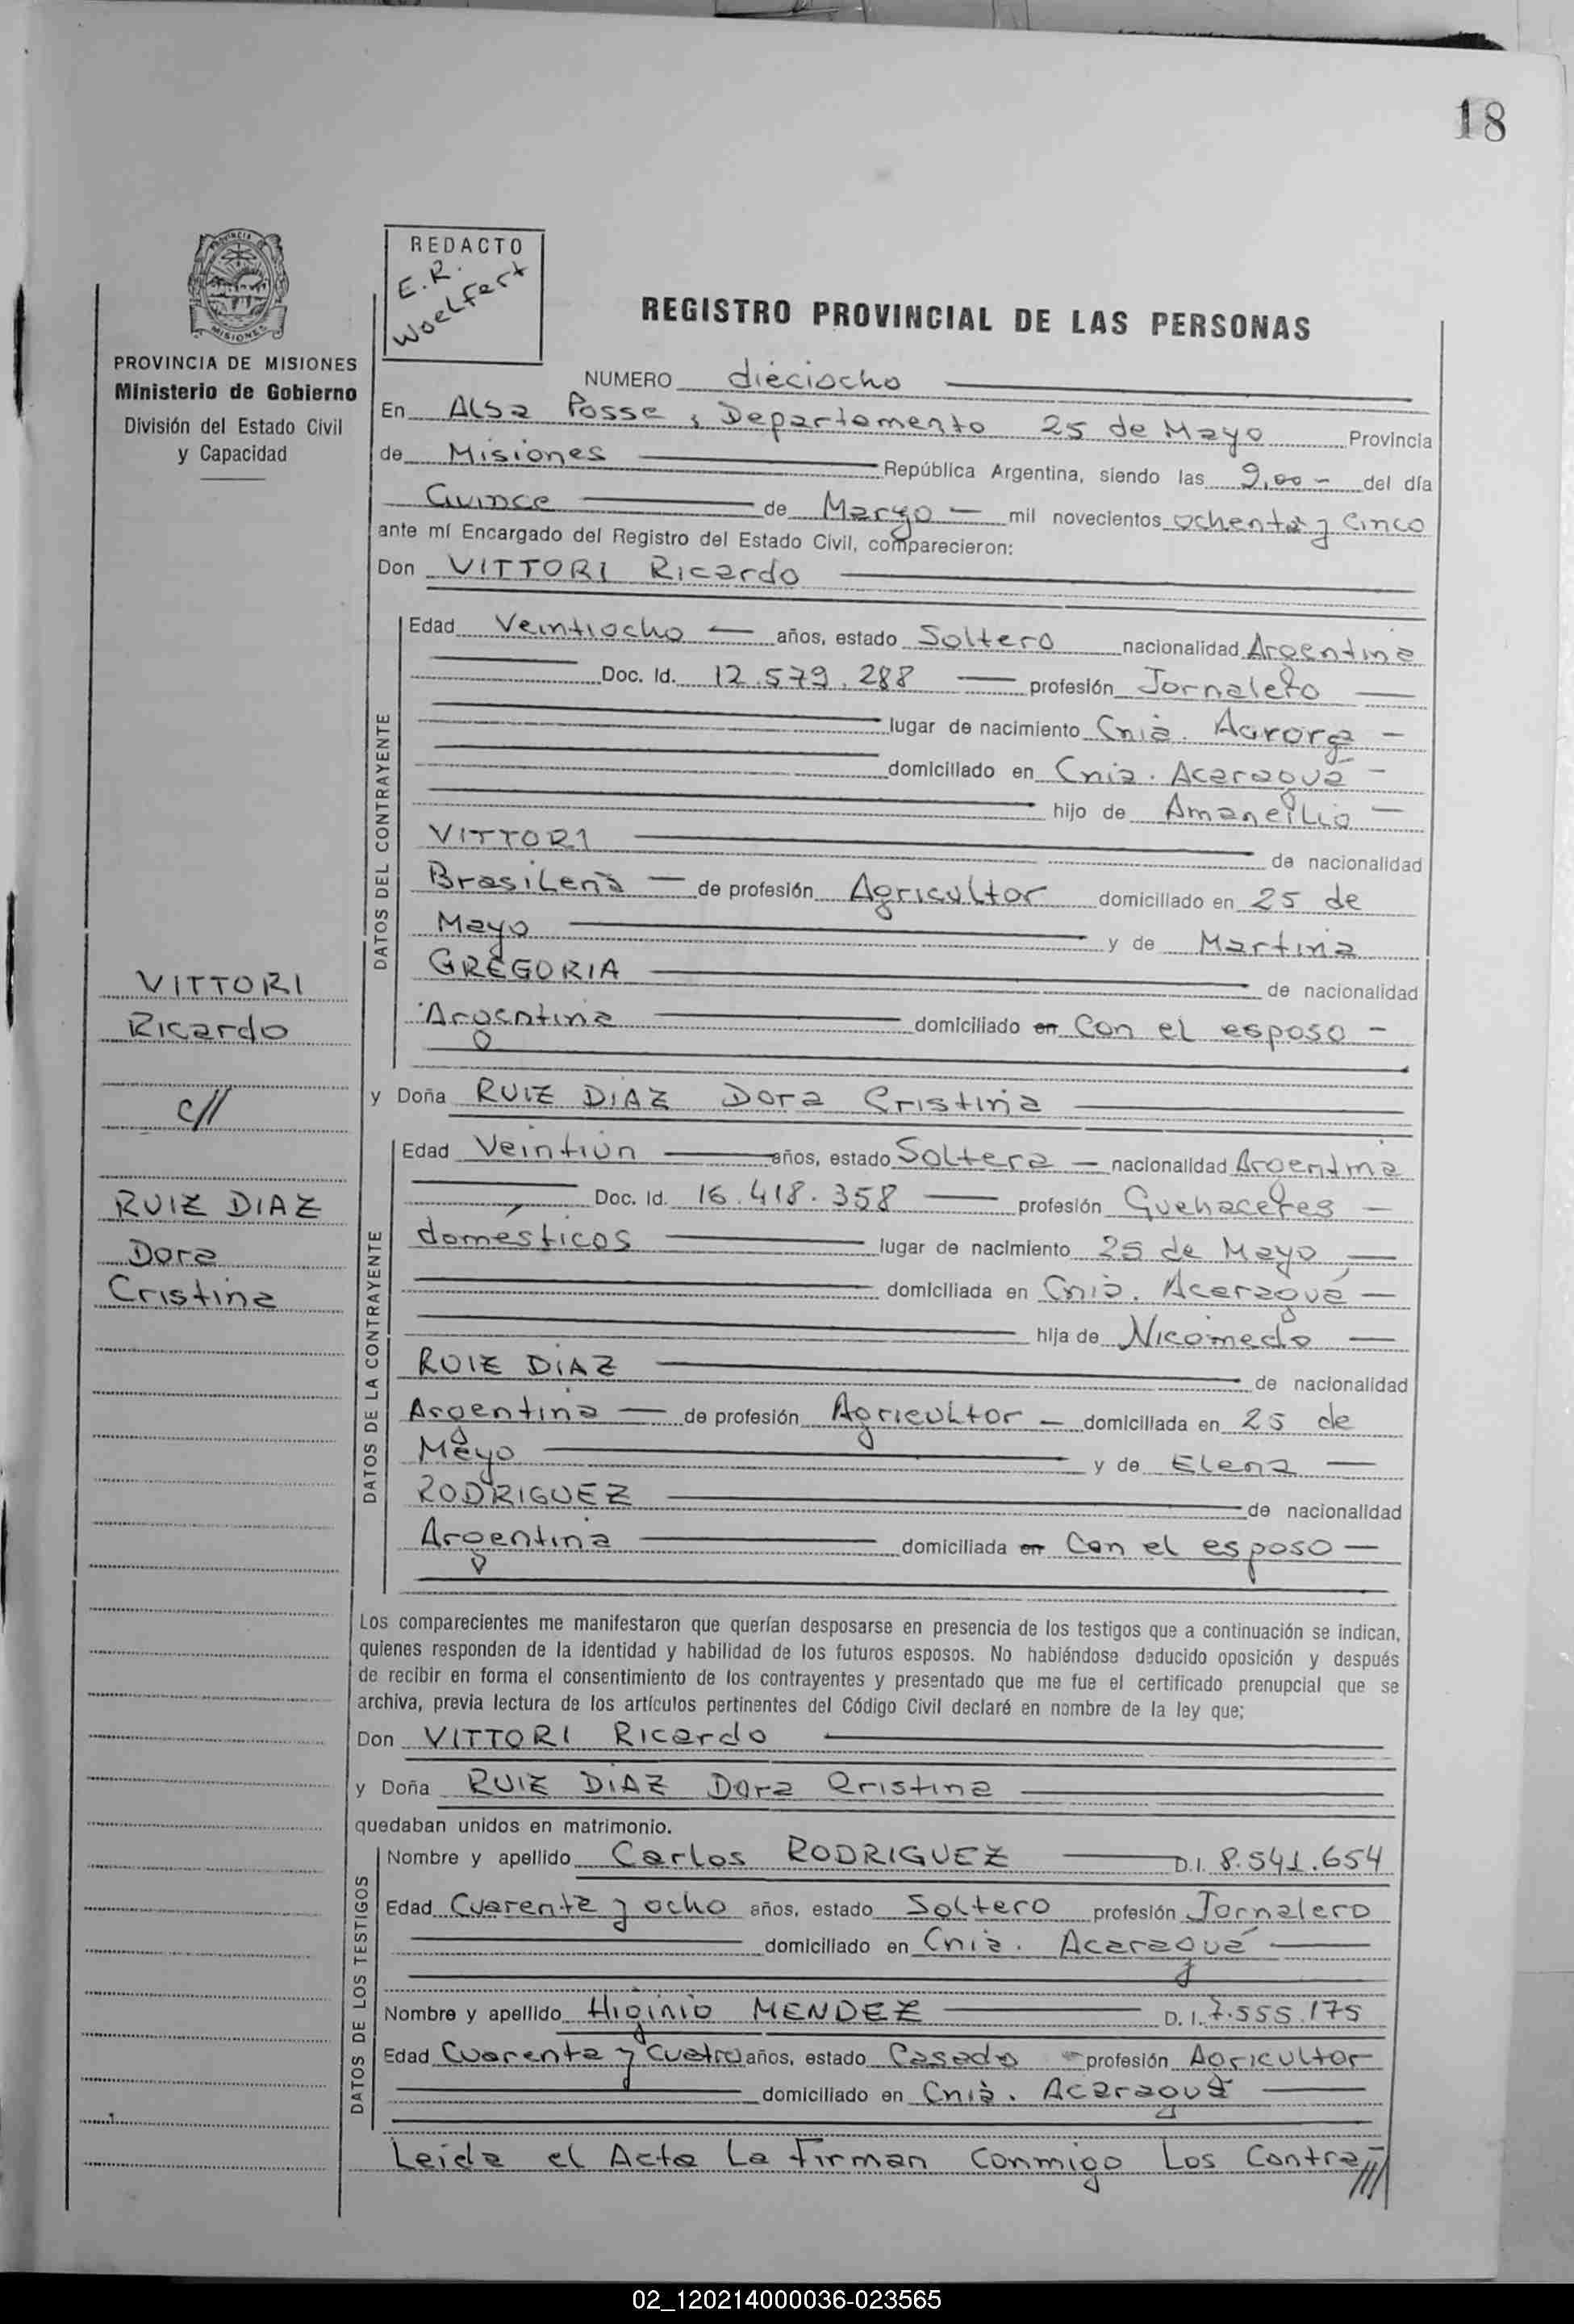 18
PROVINCIA DE
MISIONES
PROVINCIA DE MISIONES
Ministerio de Gobierno
División del Estado Civil
y Capacidad
REDACTO
E.R.
Woelfert
REGISTRO PROVINCIAL DE LAS PERSONAS
NUMERO dieciocho
En Alba Posse, Departamento 25 de Mayo Provincia
de Misiones República Argentina, siendo las 9,00 - del día
Quince de Marzo - mil novecientos ochenta y Cinco
ante mí Encargado del Registro del Estado Civil, comparecieron:
Don VITTORI Ricardo
DATOS DEL CONTRAYENTE
Edad Veintiocho — años, estado Soltero nacionalidad Argentina
Doc. Id. 12.579.288 — profesión Jornalero —
lugar de nacimiento Cnia. Aurora -
domiciliado en Cnia. Acaraguá -
hijo de —
VITTORI de nacionalidad
Brasilena — de profesión Agricultor domiciliado en 25 de
Mayo y de Martina
GREGORIA de nacionalidad
Argentina domiciliado en Con el esposo -
y Doña RUIZ DIAZ Dora Cristina
DATOS DE LA CONTRAYENTE
Edad Veintiún años, estado Soltera - nacionalidad Argentina
Doc. Id. 16.418.358 — profesión Quehaceres -
domésticos lugar de nacimiento 25 de Mayo —
domiciliada en Cnia. Acaraguá —
hija de Nicomedo —
RUIZ DIAZ de nacionalidad
Argentina — de profesión Agricultor - domiciliada en 25 de
Mayo y de Elena —
RODRIGUEZ de nacionalidad
Argentina domiciliada en Con el esposo —
VITTORI
Ricardo
c//
RUIZ DIAZ
Dora
Cristina
Los comparecientes me manifestaron que querían desposarse en presencia de los testigos que a continuación se indican,
quienes responden de la identidad y habilidad de los futuros esposos. No habiéndose deducido oposición y después
de recibir en forma el consentimiento de los contrayentes y presentado que me fue el certificado prenupcial que se
archiva, previa lectura de los artículos pertinentes del Código Civil declaré en nombre de la ley que;
Don VITTORI Ricardo
y Doña RUIZ DIAZ Dora Cristina
quedaban unidos en matrimonio.
DATOS DE LOS TESTIGOS
Nombre y apellido Carlos RODRIGUEZ D.I. 8.541.654
Edad Cuarenta y ocho años, estado Soltero profesión Jornalero
domiciliado en Cnia. Acaraguá
Nombre y apellido Higinio MENDEZ D.I. 7.555.175
Edad Cuarenta y Cuatro años, estado Casado profesión Agricultor
domiciliado en Cnia. Acaraguá
Leida el Acta La Firman Conmigo Los Contra-///
02_120214000036-023565